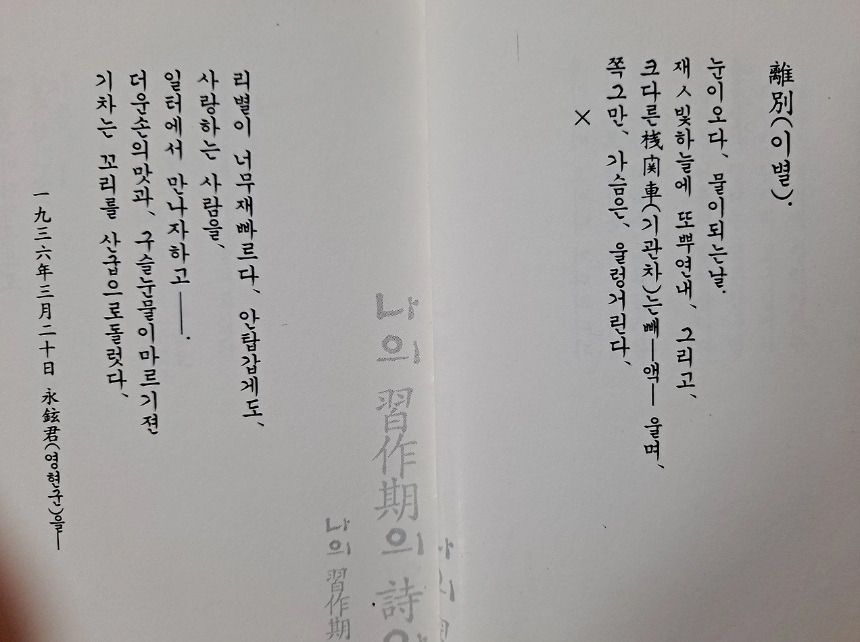 離別(이별).
눈이오다、물이되는날.
재ㅅ빛하늘에 또뿌연내、그리고、
크다른 栈関車(기관차)는빼—액— 울며、
쪽그만、가슴은、울렁거린다、
×
리별이 너무재빠르다、안탑갑게도、
사랑하는 사람을、
일터에서 만나자하고——.
더운손의맛과、구슬눈물이마르기젼
기차는 꼬리를 산굽으로돌렷다、
一九三六年三月二十日 永鉉君(영현군)을—
나의 習作期의 詩
나의 習作期